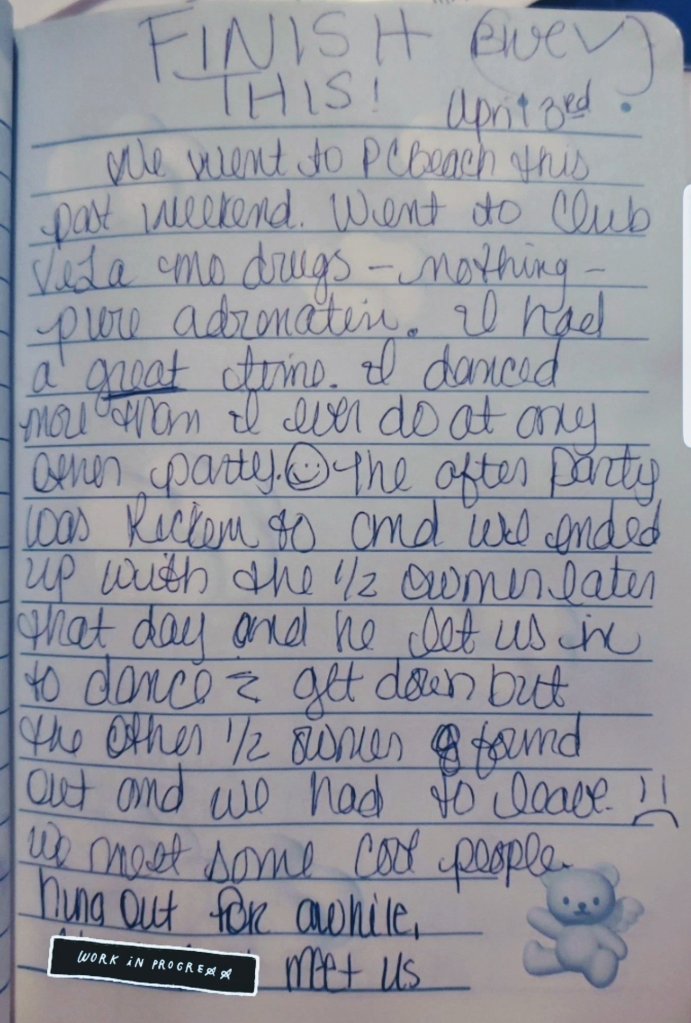 FINISH (BWEV)
THIS!
April 3rd.
We went to PCbeach this
past weekend. Went to Club
VeLa no drugs - nothing -
pure adronatein. I had
a great time. I danced
more than I ever do at any
other party. The after party
was kickem to and we ended
up with the 1/2 owner later
that day and he let us in
to dance & get down but
the other 1/2 owner found
out and we had to leave.
we meet some cool people
hung out for awhile,
meet us
WORK iN PROGRESS